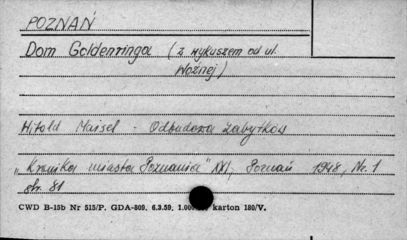 POZNAŃ
Dom Goldenringa (z wykuszem od ul.
Woźnej)
Witold Maisel - Odbudowa zabytków
"Kronika miasta Poznania" XXI, Poznań 1948, Nr. 1
str. 81
CWD B-15b Nr 515/P. GDA-809. 6.3.59. 1.00 karton 180/V.